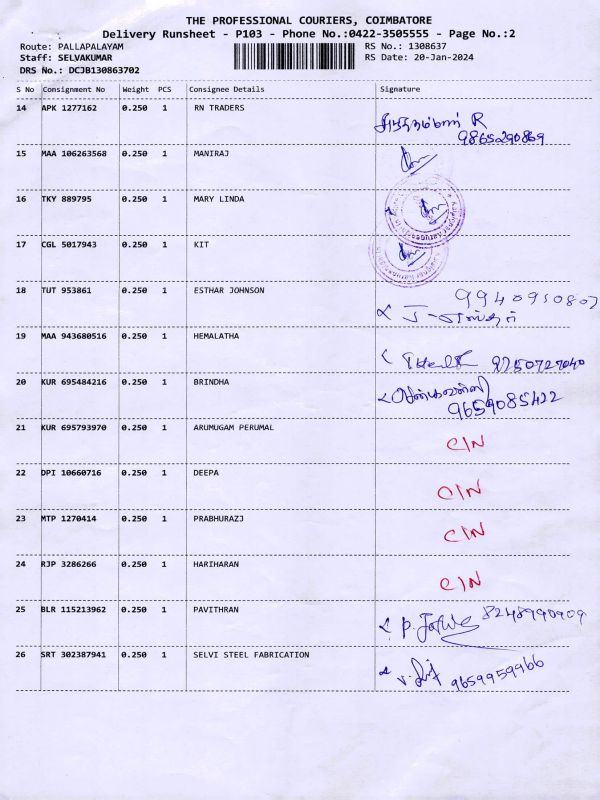 THE PROFESSIONAL COURIERS, COIMBATORE
Delivery Runsheet - P103 - Phone No.:0422-3505555 - Page No.:2
Route: PALLAPALAYAM RS No.: 1308637
Staff: SELVAKUMAR RS Date: 20-Jan-2024
DRS No.: DCJB130863702
S No Consignment No Weight PCS Consignee Details Signature
14 APK 1277162 0.250 1 RN TRADERS R
9865290869
15 MAA 106263568 0.250 1 MANIRAJ
16 TKY 889795 0.250 1 MARY LINDA
17 CGL 5017943 0.250 1 KIT
18 TUT 953861 0.250 1 ESTHAR JOHNSON
19 MAA 943680516 0.250 1 HEMALATHA 9750727040
20 KUR 695484216 0.250 1 BRINDHA
9659085422
21 KUR 695793970 0.250 1 ARUMUGAM PERUMAL C/N
22 DPI 10660716 0.250 1 DEEPA C/N
23 MTP 1270414 0.250 1 PRABHURAZJ C/N
24 RJP 3286266 0.250 1 HARIHARAN C/N
25 BLR 115213962 0.250 1 PAVITHRAN 8248990909
26 SRT 302387941 0.250 1 SELVI STEEL FABRICATION 9659959966